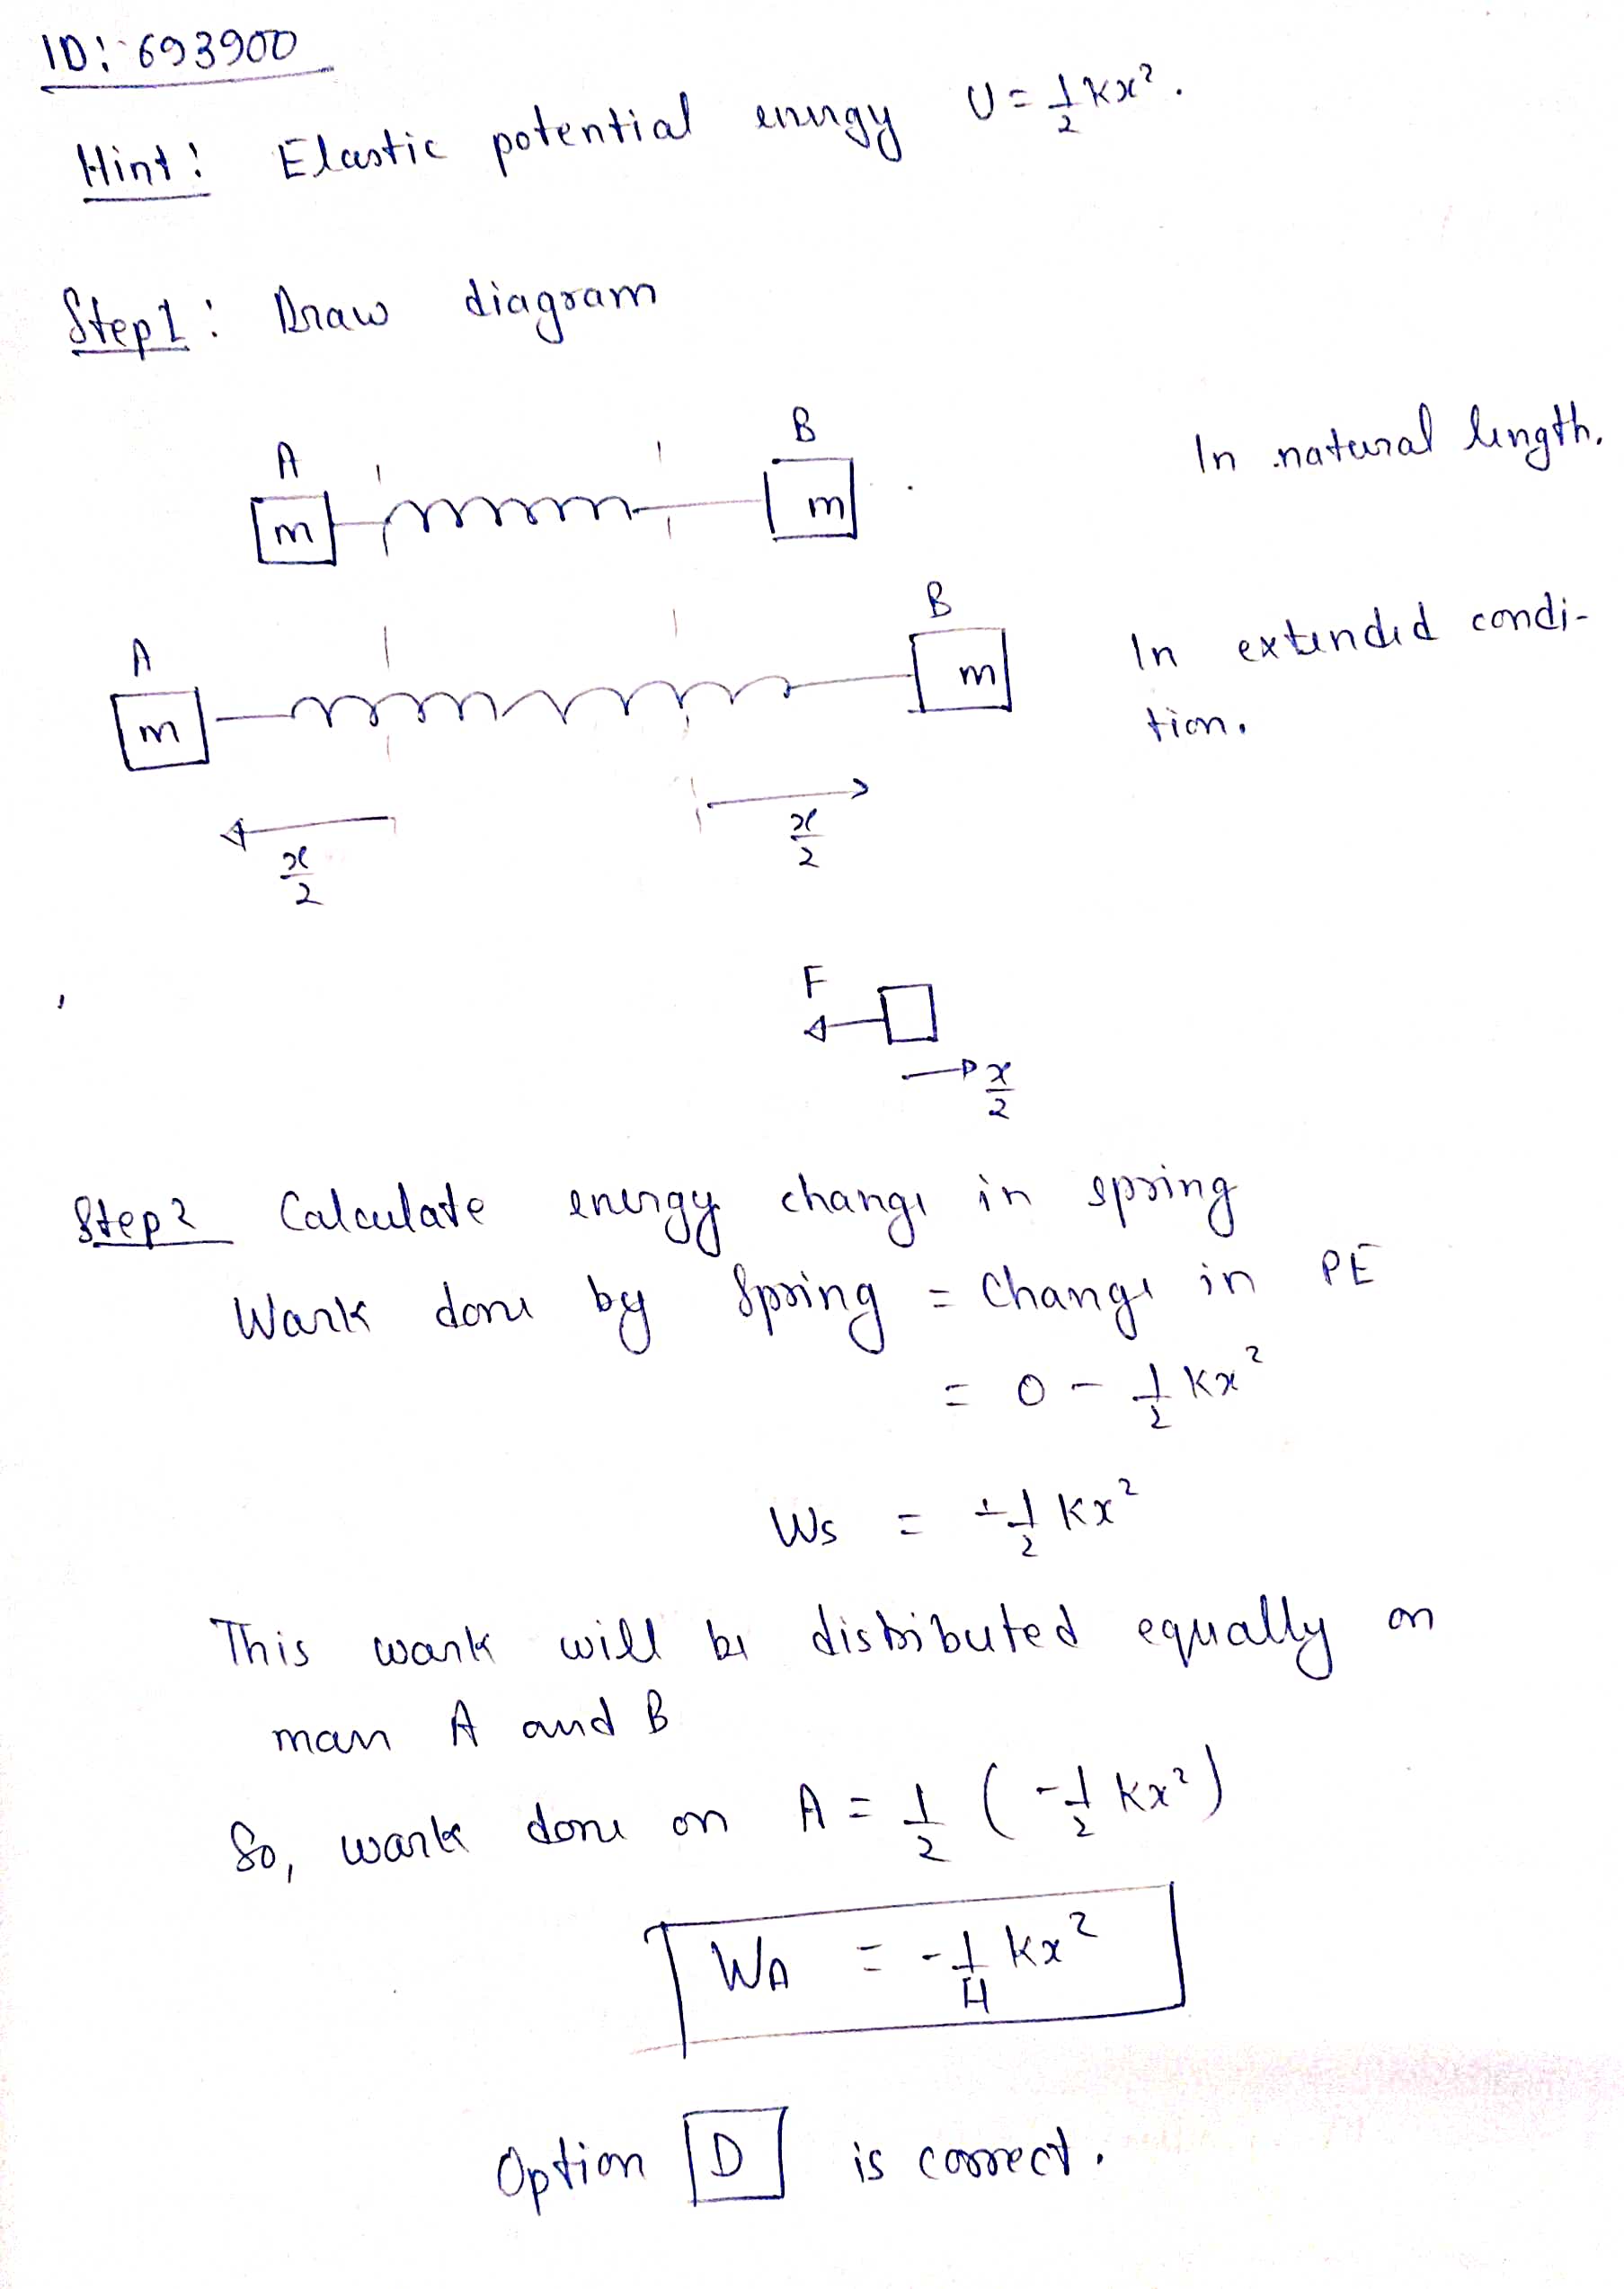 ID: 693900
Hint: Elastic potential energy U = 1/2 kx².
Step1: Draw diagram
A B
m m
In natural length.
A B
m m
In extended condi-
tion.
x/2 x/2
F
x/2
Step2 Calculate energy change in spring
Work done by Spring = Change in PE
= 0 - 1/2 kx²
Ws = -1/2 kx²
This work will be distributed equally on
mass A and B
So, work done on A = 1/2 (-1/2 kx²)
WA = -1/4 kx²
Option D is correct.